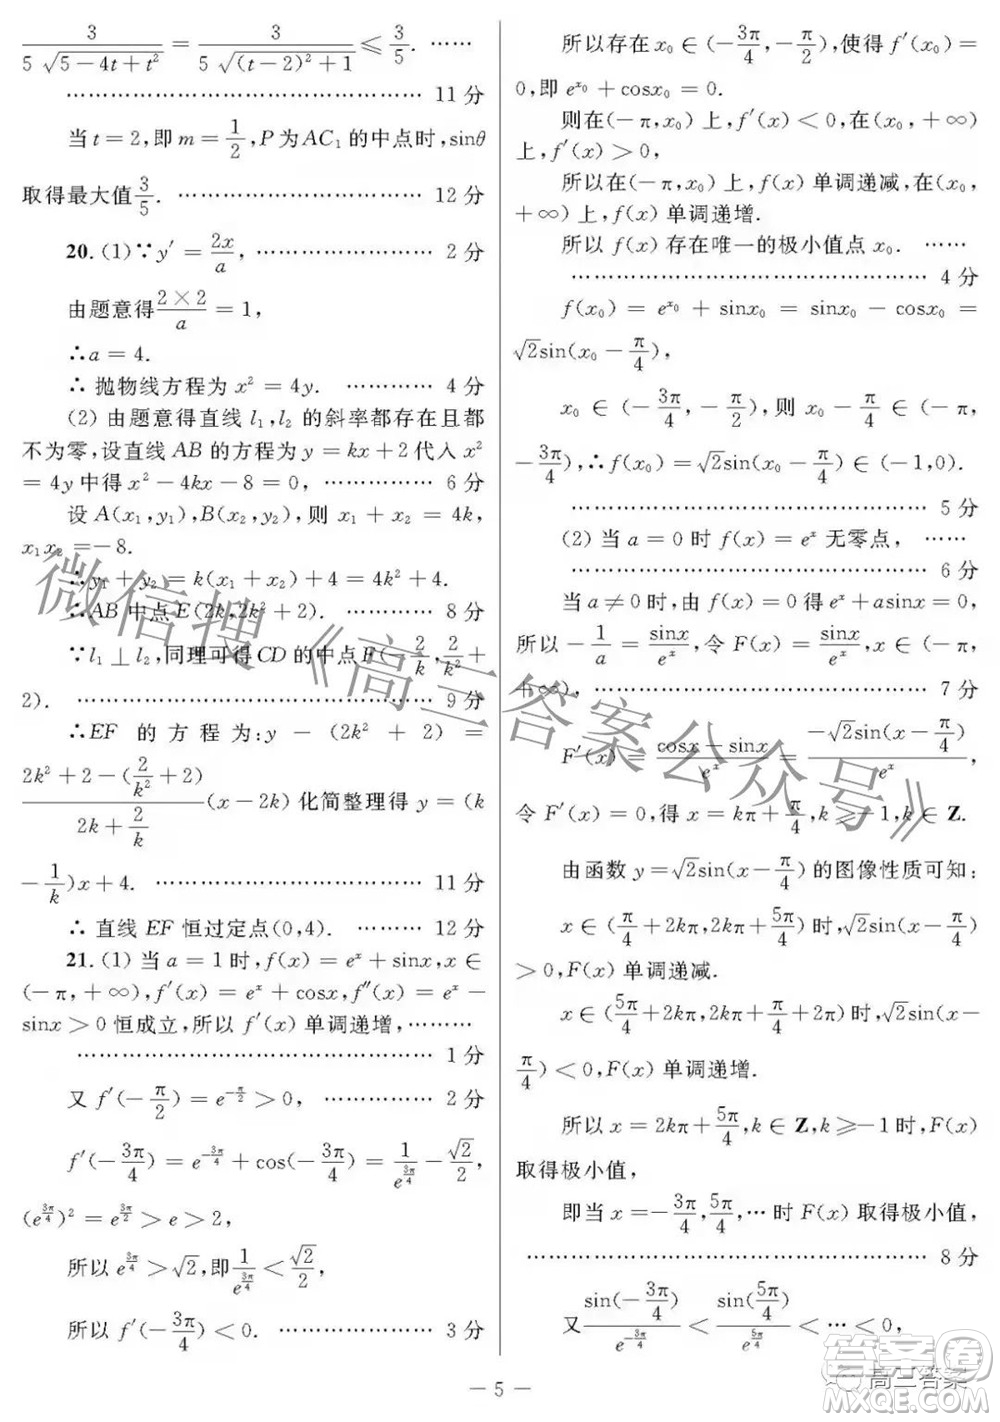 3/(5√(5−4t+t²)) = 3/(5√((t−2)²+1)) ⩽ 3/5. ……
………………………………………… 11分
当 t=2,即 m=1/2,P 为AC₁ 的中点时,sinθ
取得最大值3/5. …………………………… 12分
20.(1)∵y′=2x/a, …………………… 2分
由题意得(2×2)/a=1,
∴a=4.
∴抛物线方程为 x²=4y. ………… 4分
(2) 由题意得直线 l₁,l₂ 的斜率都存在且都
不为零,设直线 AB 的方程为 y=kx+2代入 x²
=4y中得 x²−4kx−8=0, …………… 6分
设 A(x₁,y₁),B(x₂,y₂),则 x₁+x₂=4k,
x₁x₂=−8.
∴y₁+y₂=k(x₁+x₂)+4=4k²+4.
∴AB 中点 E(2k,2k²+2). ………… 8分
∵l₁⊥l₂,同理可得CD 的中点 F(−2/k,2/k²+
2). ………………………………………… 9分
∴EF 的方程为:y − (2k² + 2) =
(2k²+2−(2/k²+2))/(2k+2/k)(x−2k)化简整理得 y=(k
−1/k)x+4. ……………………………… 11分
∴直线 EF 恒过定点(0,4). ……… 12分
21.(1) 当 a=1时,f(x)=eˣ+sinx,x∈
(−π,+∞),f′(x)=eˣ+cosx,f″(x)=eˣ−
sinx>0恒成立,所以 f′(x)单调递增,………
………………………………………… 1分
又 f′(−π/2)=e^(−π/2)>0, …………… 2分
f′(−3π/4)=e^(−3π/4)+cos(−3π/4)=1/e^(3π/4)−√2/2,
(e^(3π/4))²=e^(3π/2)>e>2,
所以 e^(3π/4)>√2,即1/e^(3π/4)<√2/2,
所以 f′(−3π/4)<0. ………………… 3分
所以存在 x₀∈(−3π/4,−π/2),使得 f′(x₀)=
0,即 e^(x₀)+cosx₀=0.
则在(−π,x₀)上,f′(x)<0,在(x₀,+∞)
上,f′(x)>0,
所以在(−π,x₀)上,f(x)单调递减,在(x₀,
+∞)上,f(x)单调递增.
所以 f(x)存在唯一的极小值点 x₀. ……
………………………………………… 4分
f(x₀) = e^(x₀) + sinx₀ = sinx₀ − cosx₀ =
√2sin(x₀−π/4),
x₀∈(−3π/4,−π/2),则 x₀−π/4∈(−π,
−3π/4),∴f(x₀)=√2sin(x₀−π/4)∈(−1,0).
………………………………………… 5分
(2) 当 a=0时 f(x)=eˣ 无零点, ……
………………………………………… 6分
当 a≠0时,由 f(x)=0得 eˣ+asinx=0,
所以−1/a=sinx/eˣ,令 F(x)=sinx/eˣ,x∈(−π,
+∞), …………………………………… 7分
F′(x)=(cosx−sinx)/eˣ=(−√2sin(x−π/4))/eˣ,
令 F′(x)=0,得 x=kπ+π/4,k⩾−1,k∈Z.
由函数 y=√2sin(x−π/4)的图像性质可知:
x∈(π/4+2kπ,5π/4+2kπ)时,√2sin(x−π/4)
>0,F(x)单调递减.
x∈(5π/4+2kπ,π/4+2kπ+2π)时,√2sin(x−
π/4)<0,F(x)单调递增.
所以 x=2kπ+5π/4,k∈Z,k⩾−1时,F(x)
取得极小值,
即当 x=−3π/4,5π/4,…时 F(x)取得极小值,
……………………………………………… 8分
又sin(−3π/4)/e^(−3π/4)<sin(5π/4)/e^(5π/4)<…<0,
— 5 —
微信搜《高三答案公众号》
高三答案
答案圈